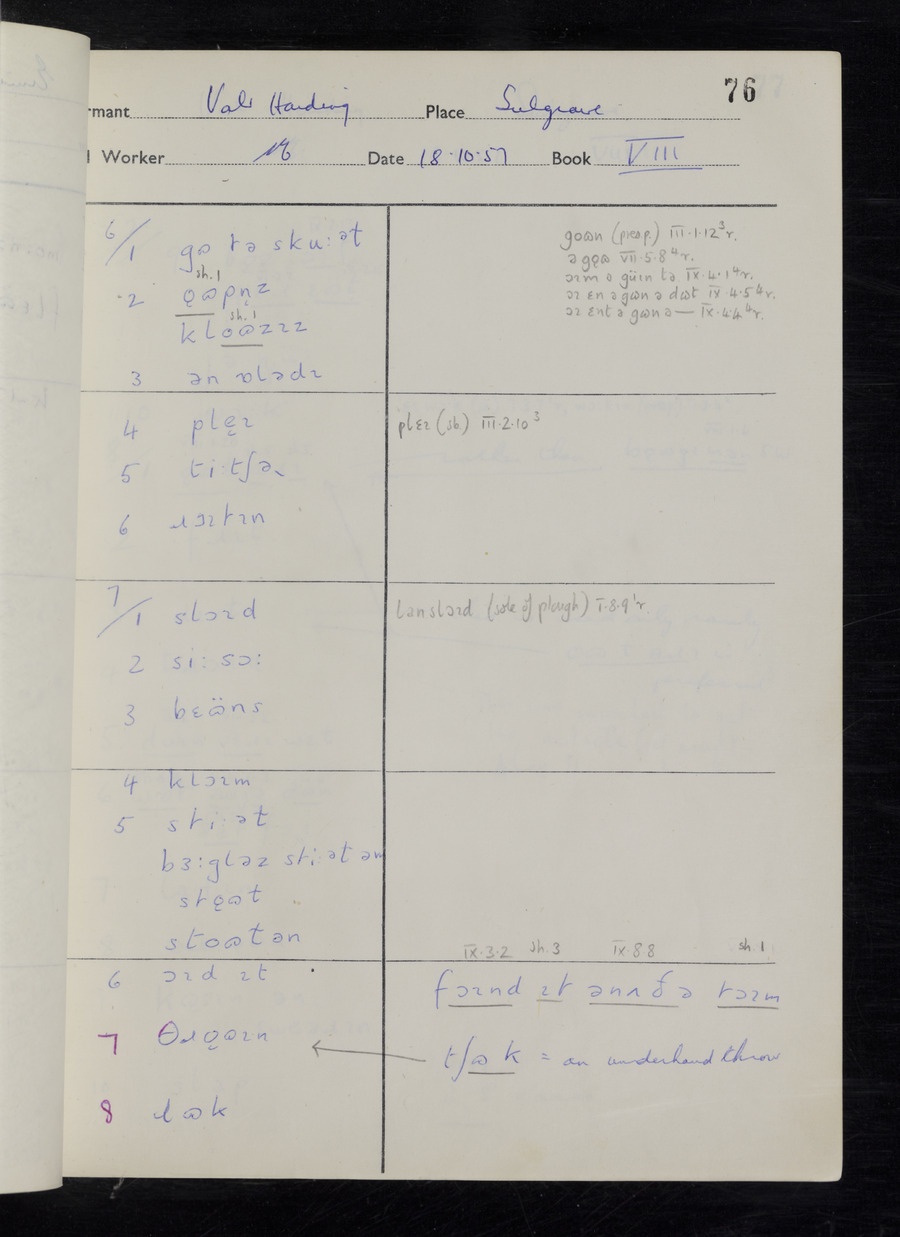 76
rmant Vale Harding Place Sulgrave
l Worker Date 18·10·57 Book VIII
6/1 gɷ tə skuːət
sh.1
2 ǫɷpn̩z
sh.1
kloɷzɪz
3 ən ɒlədɪ
goɷn (pres.p.) III·1·12³r.
ə gǫɷ VII·5·8⁴r.
ɔɪm ə güɪn tə IX·4·1⁴r.
ɔɪ ɛn ə gɷn ə dɷt IX·4·5⁴r.
ɔɪ ɛnt ə gɷn ə — IX·4·4⁴r.
4 plẹɪ
5 tiˑtʃə
6 ɹɔɪtɪn
plɛɪ (sb.) III·2·10³
7/1 slɔɪd
2 siː sɔː
3 bɛɷ̈ns
lənslɔɪd (sole of plough) I·8·9¹r.
4 klɔɪm
5 stiːət
bɜːgləz stiːət əm
stǫɷt
stoɷtən
IX·3·2 sh.3 IX·8 8 sh.1
6 ɔɪd ɪt
fɔɪnd ɪt ənʌðə tɔɪm
7 θɹǫɷɪn
tʃɷk = an underhand throw
8 lɷk